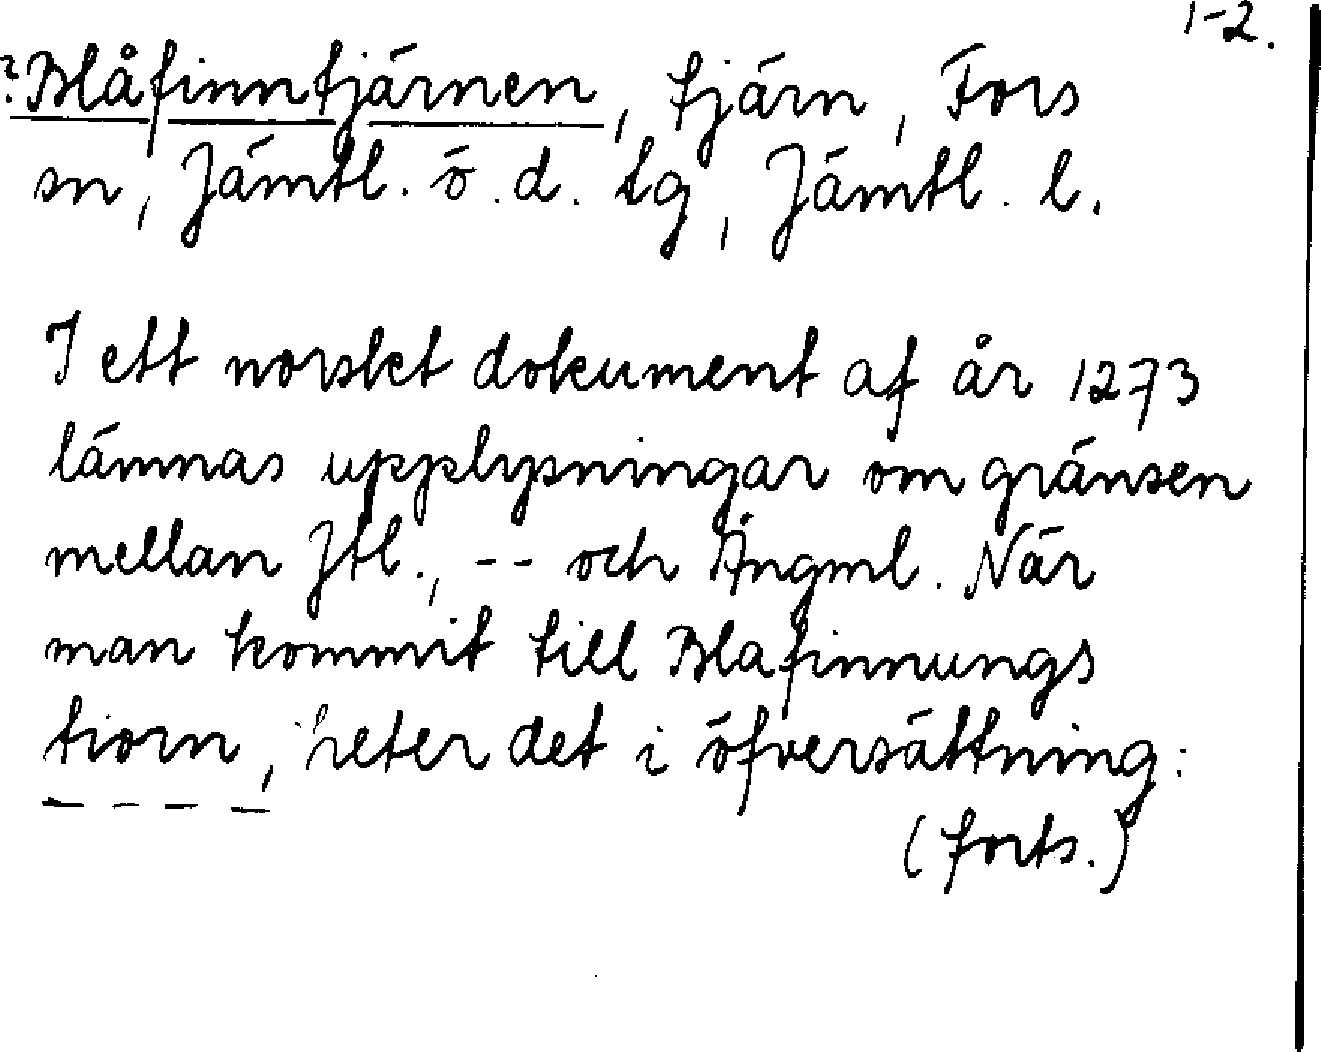 1-2.
? Blåfinntjärnen, tjärn, Fors
sn, Jämtl. ö. d. tg, Jämtl. l.
I ett norskt dokument af år 1273
lämnas upplysningar om gränsen
mellan Jtl., -- och Ångml. När
man kommit till Blafinnungs
tiorn, heter det i öfversättning:
(forts.)